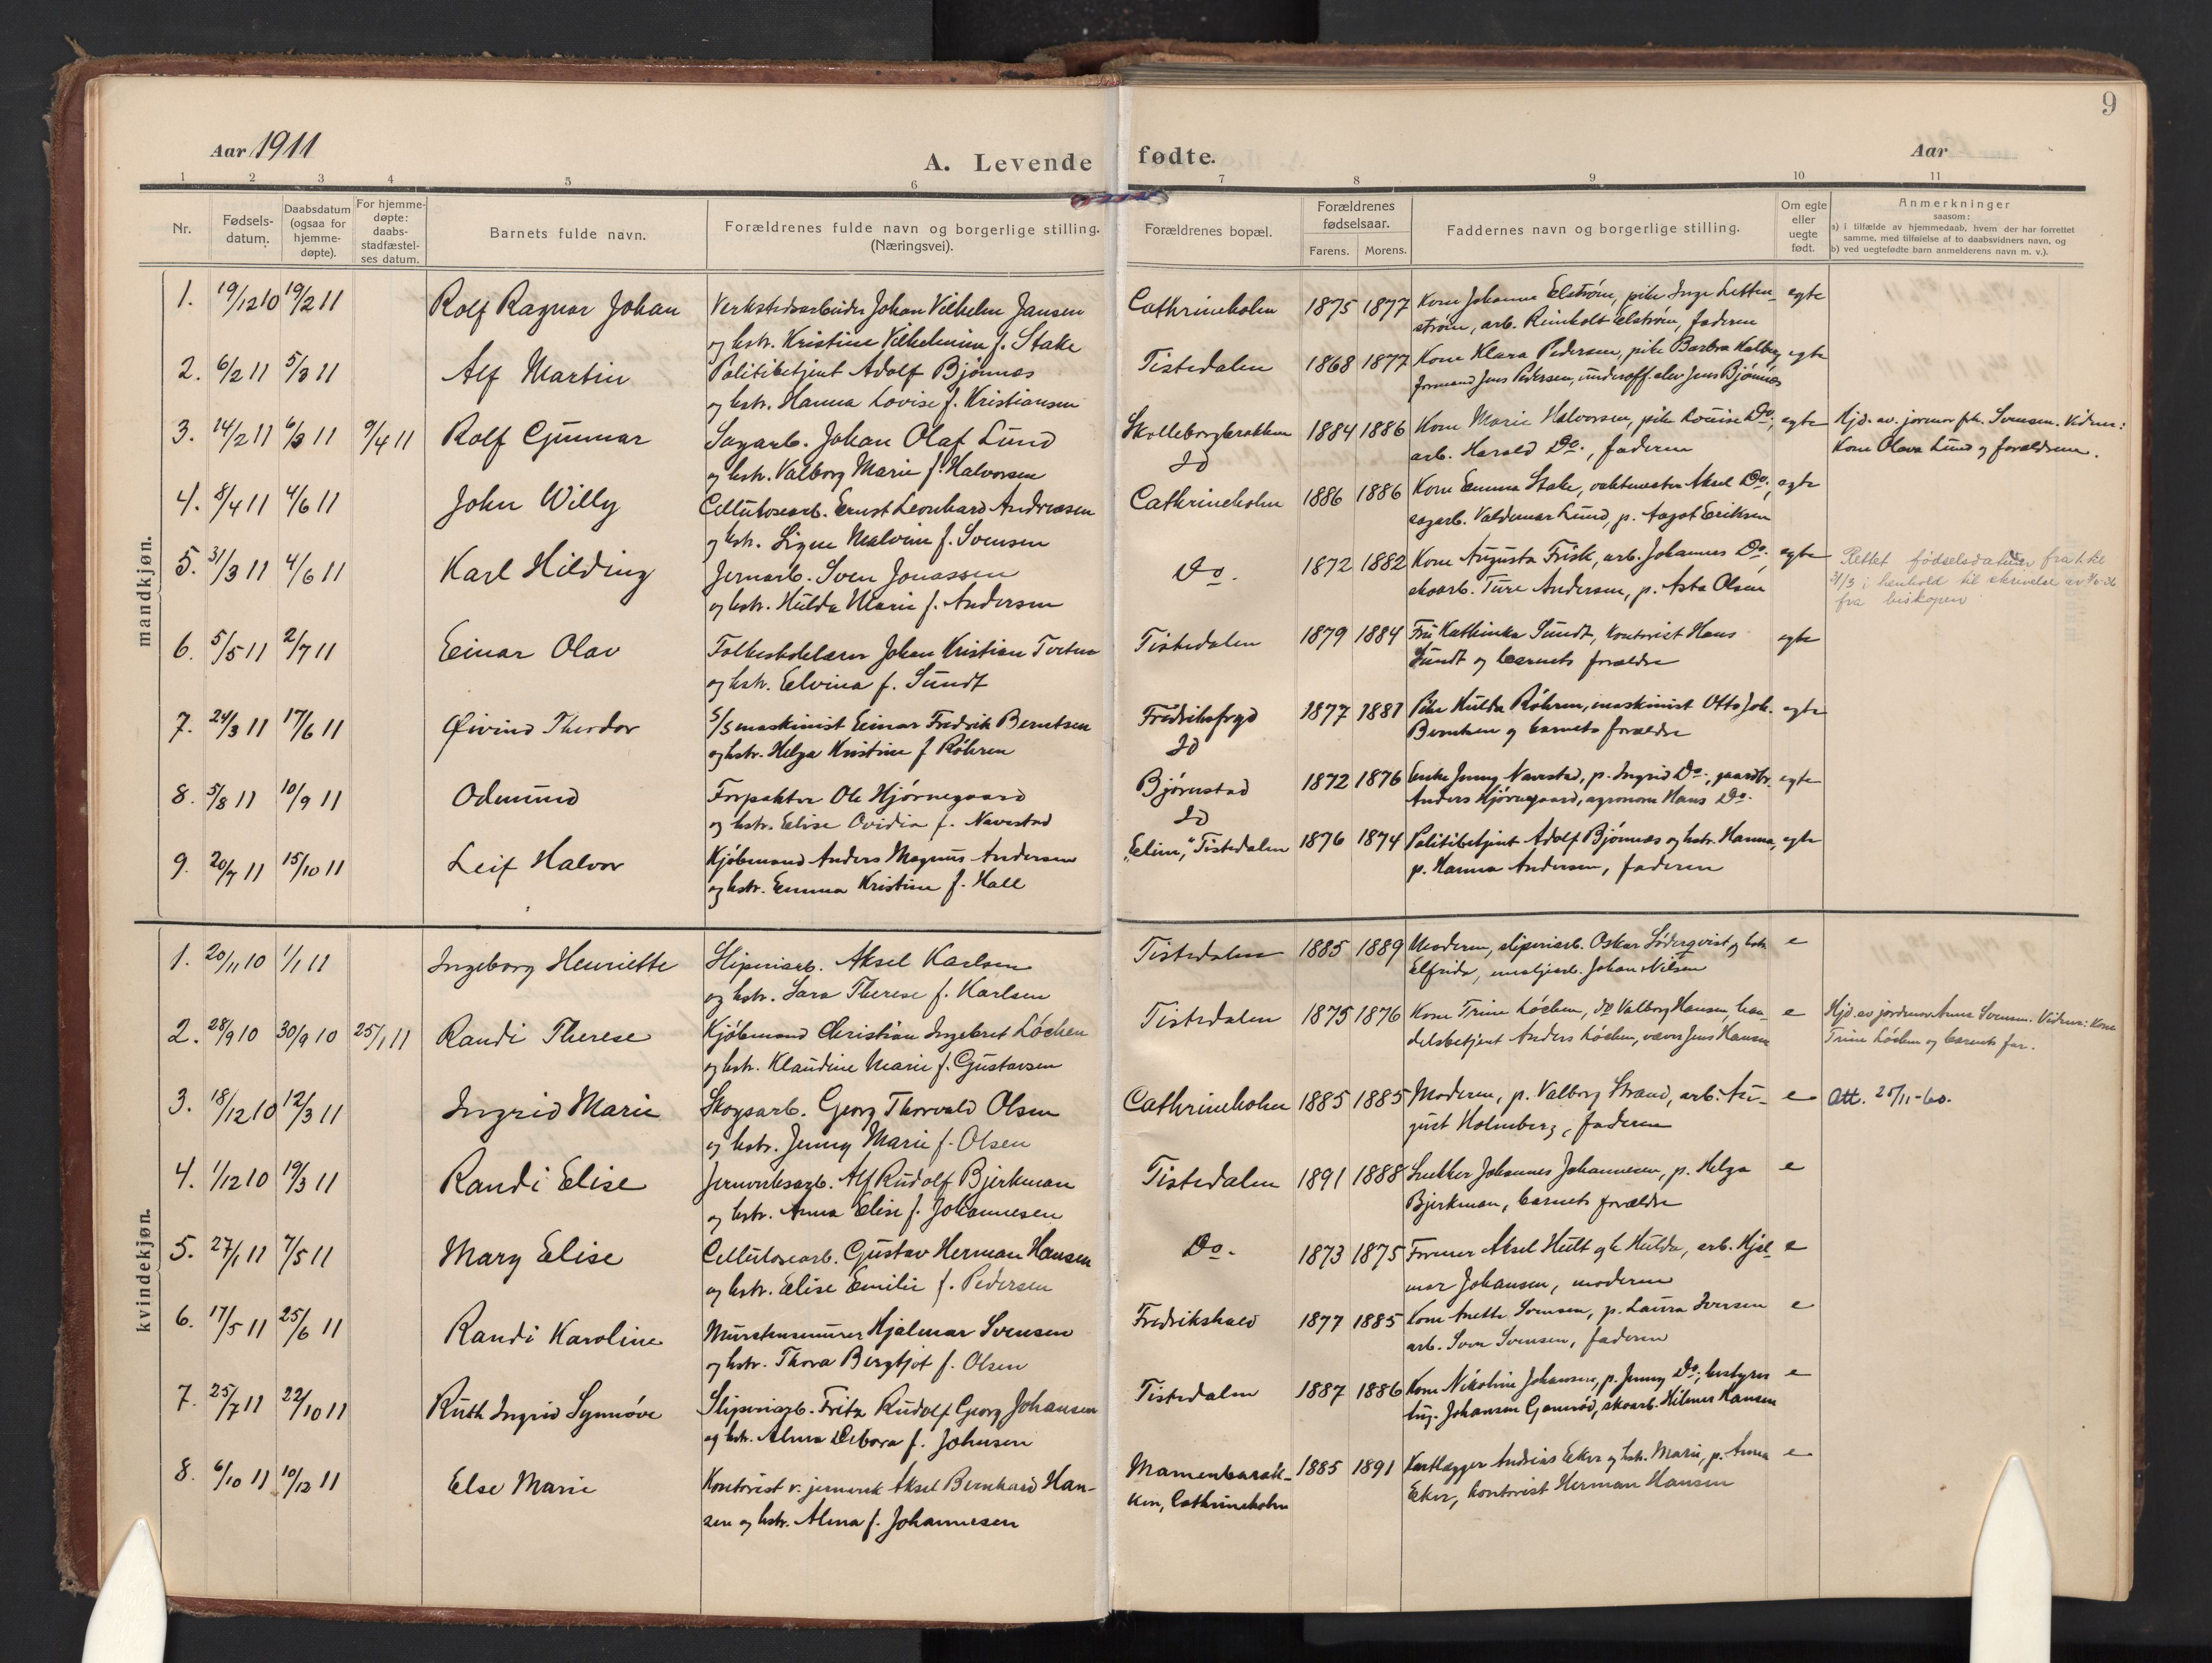 9
Aar 1911
A. Levende fødte.
Aar
1 2 3 4 5 6 7 8 9 10 11
Nr.
Fødsels-
datum.
Daabsdatum
(ogsaa for
hjemme-
døpte).
For hjemme-
døpte:
daabs-
stadfæstel-
ses datum.
Barnets fulde navn.
Forældrenes fulde navn og borgerlige stilling.
(Næringsvei).
Forældrenes bopæl.
Forældrenes
fødselsaar.
Farens. Morens.
Faddernes navn og borgerlige stilling.
Om egte
eller
uegte
født.
Anmerkninger
saasom:
a) i tilfælde av hjemmedaab, hvem der har forrettet
samme, med tilføielse af to daabsvidners navn, og
b) ved uegtefødte barn anmelderens navn m. v.).
mandkjøn.
1. 19/12 10 19/2 11 Rolf Ragnar Johan Verkstedsarbeider Johan Vilhelm Jansen Cathrineholm 1875 1877 Kone Johanne Elstrøm, pike Inga Letten- egte
og hstr. Kristine Vilhelmine f. Stake strøm, arb. Reinholt Elstrøm, faderen
2. 6/2 11 5/3 11 Alf Martin Politibetjent Adolf Bjønnes Tistedalen 1868 1877 Kone Klara Pedersen, pike Barbra Kalberg egte
og hstr. Hanna Lovise f. Kristiansen formand Jens Pedersen, underoff. elev Jens Bjønnes
3. 14/2 11 6/3 11 9/4 11 Rolf Gunnar Sagarb. Johan Olaf Lund Skolleborgbrakken 1884 1886 Kone Marie Halvorsen, pike Louise Do., egte Hjd. av. jormor frk. Svensen. Vidner:
og hstr. Valborg Marie f. Halvorsen Id arb. Harald Do., faderen Kone Olava Lund og forældrene.
4. 8/4 11 4/6 11 John Willy Cellulosearb. Ernst Leonhard Andreasen Cathrineholm 1886 1886 Kone Emma Stake, vaktmester Aksel Do., egte
og hstr. Signe Malvine f. Svensen sagarb. Valdemar Lund, p. Aagot Eriksen
5. 31/3 11 4/6 11 Karl Hilding Jernarb. Sven Jonassen Do. 1872 1882 Kone Augusta Frisk, arb. Johannes Do., egte Rettet fødselsdatoen fra
og hstr. Hulda Marie f. Andersen skoarb. Ture Andersen, p. Asta Olsen 31/3 i henhold til skrivelse av
fra biskopen
6. 5/5 11 2/7 11 Einar Olav Folkeskolelærer Johan Kristian Tveten Tistedalen 1879 1884 Fru Kathinka Sundt, kontorist Hans egte
og hstr. Elvina f. Sundt Sundt og barnets forældre
7. 24/3 11 17/6 11 Øivind Theodor S/S maskinist Einar Fredrik Berntsen Fredriksfryd 1877 1881 Pike Hulda Røhren, maskinist Otto Joh. egte
og hstr. Helga Kristine f. Røhren Id Berntsen og barnets forældre
8. 5/8 11 10/9 11 Odmund Forpakter Ole Hjørnegaard Bjørnstad 1872 1876 Enke Jenny Navestad, p. Ingrid Do., gaardbr. egte
og hstr. Elise Ovidia f. Navestad Id Anders Hjørnegaard, agronom Hans Do.
9. 20/7 11 15/10 11 Leif Halvor Kjøbmand Anders Magnus Andersen "Elim," Tistedalen 1876 1874 Politibetjent Adolf Bjønnes og hstr. Hanna, egte
og hstr. Emma Kristine f. Hall p. Hanna Andersen, faderen
kvindekjøn.
1. 20/11 10 1/1 11 Ingeborg Henriette Sliperiarb. Aksel Karlsen Tistedalen 1885 1889 Moderen, sliperiarb. Oskar Söderqvist og hstr e
og hstr. Sara Therese f. Karlsen Elfrida, arb. Johan Nilsen
2. 28/9 10 30/9 10 25/1 11 Randi Therese Kjøbmand Christian Ingebret Løchen Tistedalen 1875 1876 Kone Trine Løchen, do Valborg Hansen, han- e Hjd. av jordmor Anna Svensen. Vidner: Kone
og hstr. Klaudine Marie f. Gustavsen delsbetjent Anders Løchen, væver Jens Hansen Trine Løchen og barnets far.
3. 18/12 10 12/3 11 Ingrid Marie Skogsarb. Georg Thorvald Olsen Cathrineholm 1885 1885 Moderen, p. Valborg Strand, arb. Au- e Att. 25/11-60.
og hstr. Jenny Marie f. Olsen gust Holmberg, faderen
4. 1/12 10 19/3 11 Randi Elise Jernverksarb. Alf Rudolf Bjerkman Tistedalen 1891 1888 Snekker Johannes Johannesen, p. Helga e
og hstr. Anna Elise f. Johannesen Bjerkman, barnets forældre
5. 27/1 11 7/5 11 Mary Elise Cellulosearb. Gustav Herman Hansen Do. 1873 1875 Former Aksel Hult og h Hulda, arb. Hjal- e
og hstr. Elise Emilie f. Pedersen mar Johansen, moderen
6. 17/5 11 25/6 11 Randi Karoline Murstensmurer Hjalmar Svensen Fredrikshald 1877 1885 Kone Anette Svensen, p. Laura Iversen e
og hstr. Thora Bergljot f. Olsen arb. Sven Svensen, faderen
7. 25/7 11 22/10 11 Ruth Ingrid Synnøve Sliperiarb. Fritz Rudolf Georg Johansen Tistedalen 1887 1886 Kone Nikoline Johansen, p. Jenny Do., bestyrer e
og hstr. Alma Debora f. Johnsen Johansen skoarb. Hilmer Hansen
8. 6/10 11 10/12 11 Else Marie Kontorist v. jernverk Aksel Bernhard Han- Mamenbarak- 1885 1891 Andreas Eeker og hstr. Marie, p. Anna e
sen og hstr. Alma f. Johannesen ken, Cathrineholm Eeker, kontorist Herman Hansen